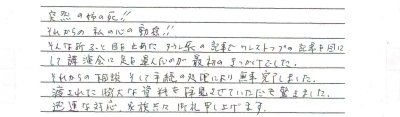 突然の姉の死!!
それからの私の心の動揺!!
そんな折ふと目を止めた チラシ系の記事でワンストップの記事を目に
して講演会に足を運んだのが最初のきっかけでした。
それからの相談 そして手続の処理により無事完了しました。
渡された膨大な資料を拝見させていただき驚きました。
迅速な対応、家族共々御礼申し上げます。